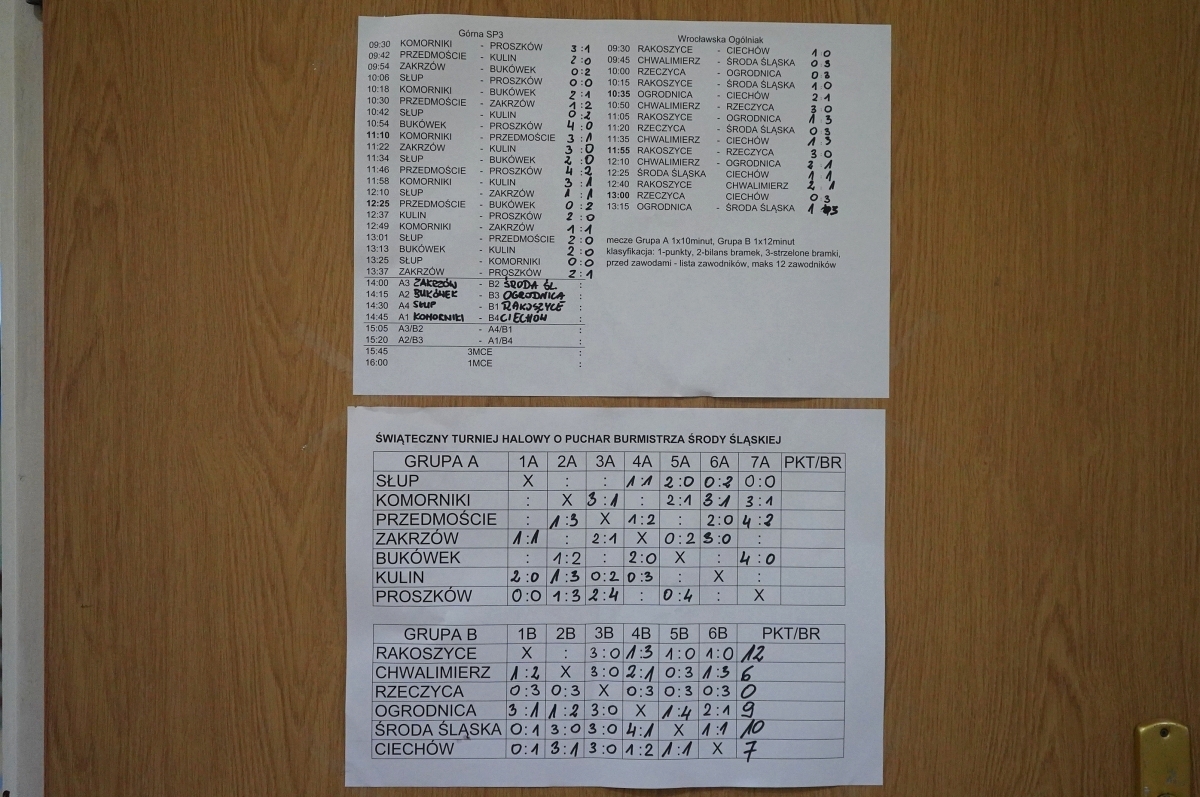 Górna SP3
09:30 KOMORNIKI - PROSZKÓW 3:1
09:42 PRZEDMOŚCIE - KULIN 2:0
09:54 ZAKRZÓW - BUKÓWEK 0:2
10:06 SŁUP - PROSZKÓW 0:0
10:18 KOMORNIKI - BUKÓWEK 2:1
10:30 PRZEDMOŚCIE - ZAKRZÓW 1:2
10:42 SŁUP - KULIN 0:2
10:54 BUKÓWEK - PROSZKÓW 4:0
11:10 KOMORNIKI - PRZEDMOŚCIE 3:1
11:22 ZAKRZÓW - KULIN 3:0
11:34 SŁUP - BUKÓWEK 2:0
11:46 PRZEDMOŚCIE - PROSZKÓW 4:2
11:58 KOMORNIKI - KULIN 3:1
12:10 SŁUP - ZAKRZÓW 1:1
12:25 PRZEDMOŚCIE - BUKÓWEK 0:2
12:37 KULIN - PROSZKÓW 2:0
12:49 KOMORNIKI - ZAKRZÓW 1:1
13:01 SŁUP - PRZEDMOŚCIE 2:0
13:13 BUKÓWEK - KULIN 2:0
13:25 SŁUP - KOMORNIKI 0:0
13:37 ZAKRZÓW - PROSZKÓW 2:1
14:00 A3 ZAKRZÓW - B2 ŚRODA ŚL :
14:15 A2 BUKÓWEK - B3 OGRODNICA :
14:30 A4 SŁUP - B1 RAKOSZYCE :
14:45 A1 KOMORNIKI - B4 CIECHÓW :
15:05 A3/B2 - A4/B1 :
15:20 A2/B3 - A1/B4 :
15:45 3MCE :
16:00 1MCE :
Wrocławska Ogólniak
09:30 RAKOSZYCE - CIECHÓW 1 0
09:45 CHWALIMIERZ - ŚRODA ŚLĄSKA 0 3
10:00 RZECZYCA - OGRODNICA 0 3
10:15 RAKOSZYCE - ŚRODA ŚLĄSKA 1 0
10:35 OGRODNICA - CIECHÓW 2 1
10:50 CHWALIMIERZ - RZECZYCA 3 0
11:05 RAKOSZYCE - OGRODNICA 1 3
11:20 RZECZYCA - ŚRODA ŚLĄSKA 0 3
11:35 CHWALIMIERZ - CIECHÓW 1 3
11:55 RAKOSZYCE - RZECZYCA 3 0
12:10 CHWALIMIERZ - OGRODNICA 2 1
12:25 ŚRODA ŚLĄSKA CIECHÓW 1 1
12:40 RAKOSZYCE CHWALIMIERZ 2 1
13:00 RZECZYCA CIECHÓW 0 3
13:15 OGRODNICA - ŚRODA ŚLĄSKA 1
mecze Grupa A 1x10minut, Grupa B 1x12minut
klasyfikacja: 1-punkty, 2-bilans bramek, 3-strzelone bramki,
przed zawodami - lista zawodników, maks 12 zawodników
ŚWIĄTECZNY TURNIEJ HALOWY O PUCHAR BURMISTRZA ŚRODY ŚLĄSKIEJ
GRUPA A 1A 2A 3A 4A 5A 6A 7A PKT/BR
SŁUP X : : 1:1 2:0 0:2 0:0
KOMORNIKI : X 3:1 : 2:1 3:1 3:1
PRZEDMOŚCIE : 1:3 X 1:2 : 2:0 4:2
ZAKRZÓW 1:1 : 2:1 X 0:2 3:0 :
BUKÓWEK : 1:2 : 2:0 X : 4:0
KULIN 2:0 1:3 0:2 0:3 : X :
PROSZKÓW 0:0 1:3 2:4 : 0:4 : X
GRUPA B 1B 2B 3B 4B 5B 6B PKT/BR
RAKOSZYCE X : 3:0 1:3 1:0 1:0 12
CHWALIMIERZ 1:2 X 3:0 2:1 0:3 1:3 6
RZECZYCA 0:3 0:3 X 0:3 0:3 0:3 0
OGRODNICA 3:1 1:2 3:0 X 1:4 2:1 9
ŚRODA ŚLĄSKA 0:1 3:0 3:0 4:1 X 1:1 10
CIECHÓW 0:1 3:1 3:0 1:2 1:1 X 7